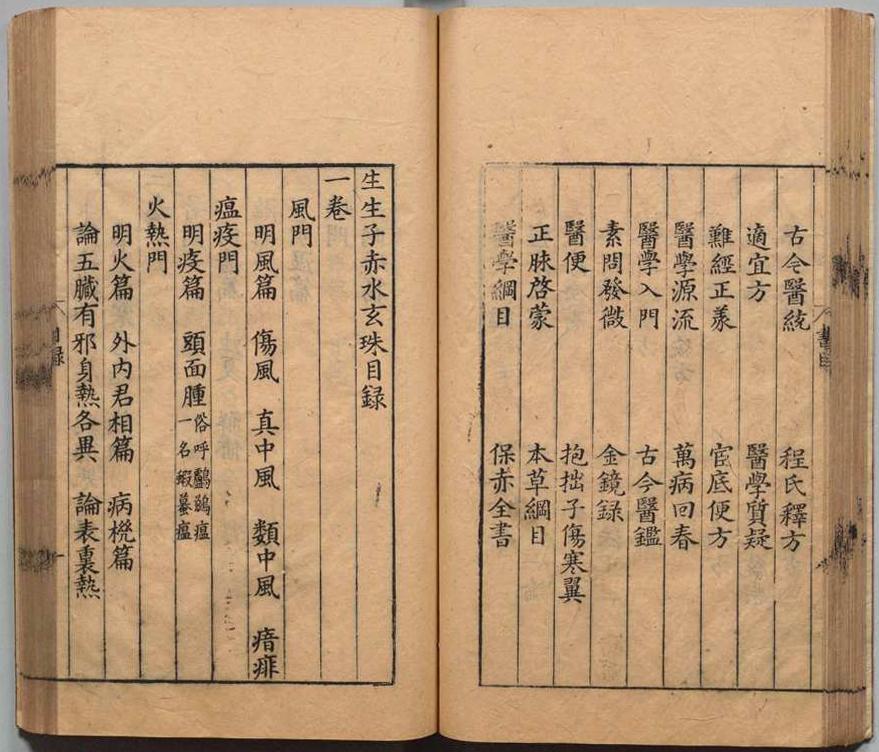 古今醫統　程氏釋方
適宜方　醫學質疑
難經正義　官底便方
醫學源流　萬病回春
醫學入門　古今醫鑑
素問發微　金鏡録
醫便　抱拙子傷寒翼
正脉啓蒙　本草綱目
醫學綱目　保赤全書
生生子赤水玄珠目録
一卷
風門
明風篇　傷風　真中風　類中風　瘖痱
瘟疫門
明疫篇　頭面腫俗呼鸕鷀瘟一名蝦蟇瘟
火熱門
明火篇　外内君相篇　病機篇
論五臟有邪身熱各異　論表裏熱
目録